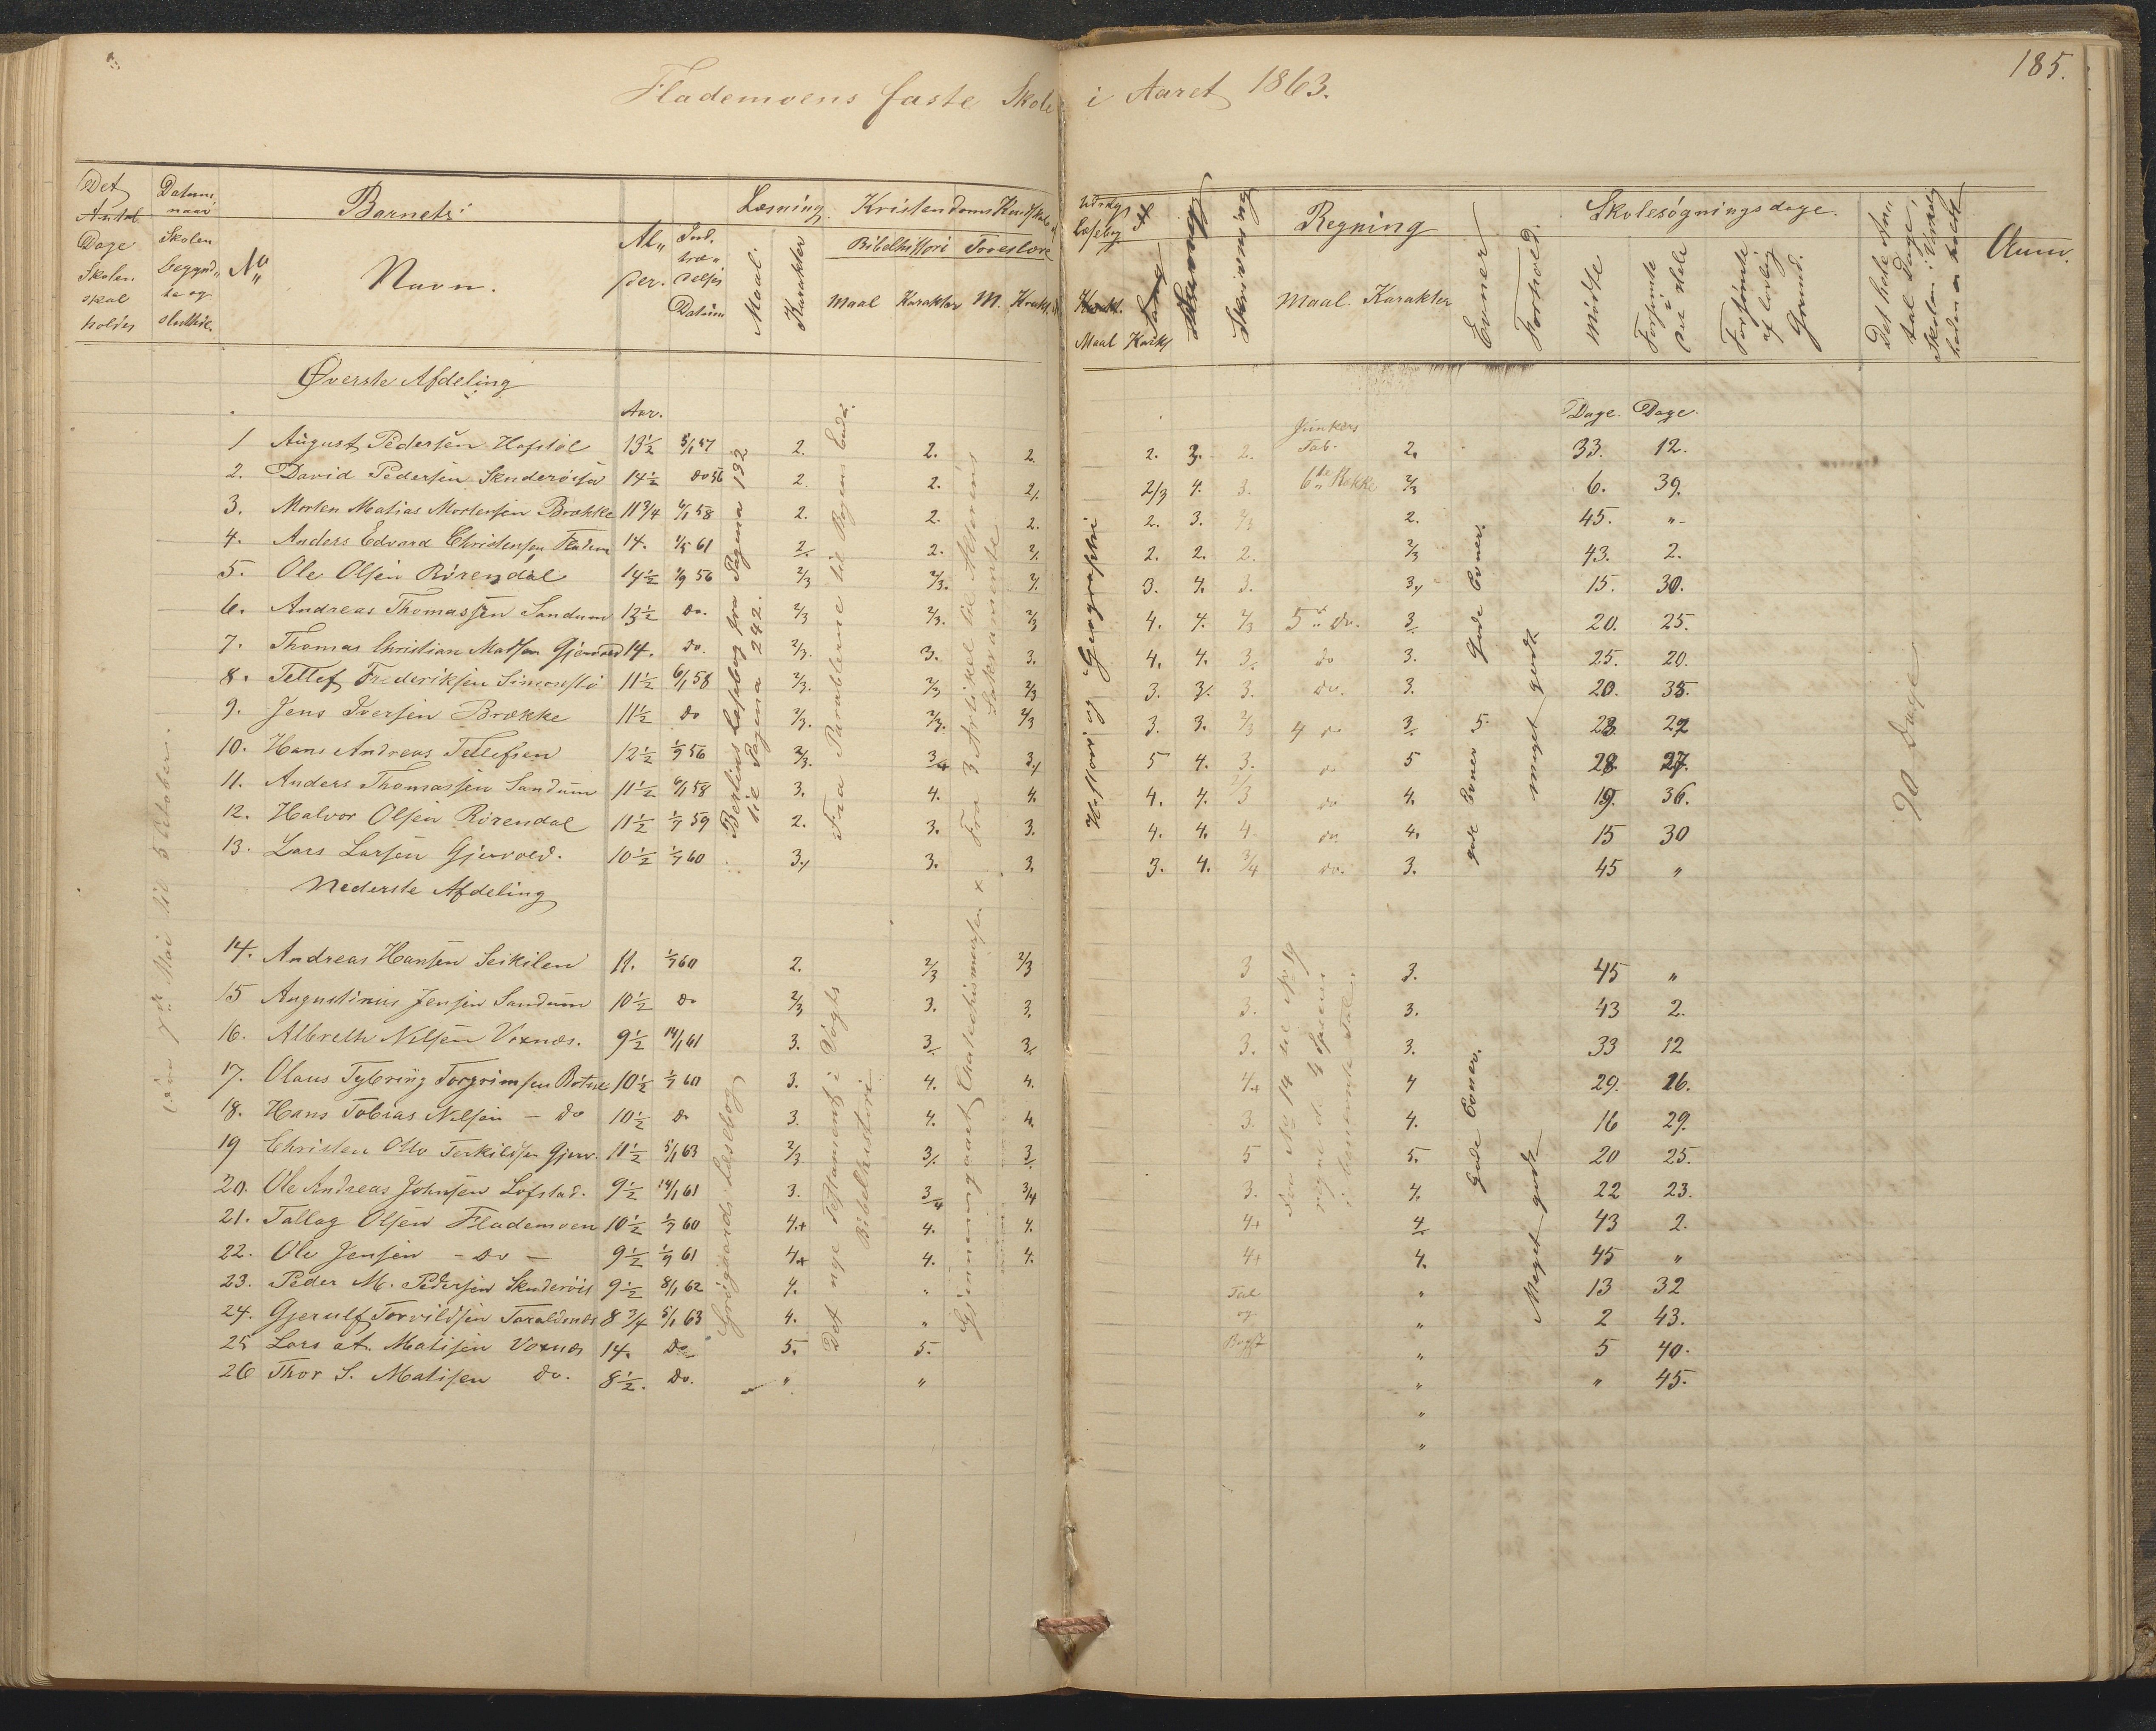 185.
Flademoens faste Skole i Aaret 1863.
Det Antal Dage Skolen skal holdes
Datum, naar Skolen begynd„ te og sluttede.
No
Barnets:
Navn.
Al„ der.
Ind. træ„ delses Datum
Læsning.
Maal.
Karakter
Kristendoms Kundskab
Bibelhistori
Troeslære
Maal Karakter M. Karakt.
Maal Karkt
Sang
Skrivning
Regning
Maal. Karakter
Evner
Forhold.
Skolesøgningsdage.
Mødte
Forsømte i det Hele
Forsømte af lovlig Grund.
Det hele An„ tal Dage, Skolen i Virkelig heden er holdt
Anm.
Øverste Afdeling
Aar.
Dage. Dage.
1 August Pedersen Hafstøl 13½ 5/1 57 2. 2. 2. 2. 3. 2. Tab. 2. 33. 12.
2. David Pedersen 14½ do 56 2. 2. 2/. 2/3 4. 3. 6te Rekke 2/3 6. 39.
3. Morten Matias Mortensen Brække 11¾ 6/1 58 2. 2. 2. 2. 3. 2/3 2. 45. „
4. Anders Edvard Christensen 14. 1/5 61 2/. 2. 2/. 2. 2. 2. 2/3 43. 2.
5. Ole Olsen Rörendal 14½ 1/9 56 2/3 2/3. 2/. 3. 4. 3. 3/. 15. 30.
6. Andreas Thomassen Sandum 13½ do. 2/3 2/3. 2/3 4. 4. 2/3 5te do. 3/. 20. 25.
7. Thomas Christian Madsen 14. do. 2/3. 3. 3. 4. 4. 3/. do 3. 25. 20.
8. Tellef Frederiksen 11½ 6/1 58 2/3. 2/3 2/3 3. 3/. 3. do. 3. 20. 35.
9. Jens Iversen Brække 11½ do 2/3. 2/3. 2/3 3. 3. 2/3 4 do 3/.
10. Hans Andreas Tellefsen 12½ 1/9 56 2/3. 3/4 3/. 5 4. 3. do 5 28. 27.
11. Anders Thomassen Sandum 11½ 6/1 58 3. 4. 4. 4. 4. 2/3 do 4. 19. 36.
12. Halvor Olsen Rörendal 11½ 1/7 59 2. 3. 3. 4. 4. 4. do 4. 15 30
13. Lars Larsen Gjervold. 10½ 1/7 60 3/. 3. 3. 3. 4. 3/4 do. 3. 45 „
Nederste Afdeling
14. Andreas Hansen Seikilen 11. 1/7 60 2. 2/3 2/3 3 3. 45 „
15 Augustinius Jensen Sandum 10½ do 2/3 3. 3. 3. 3. 43 2.
16. Albreth Nilsen Voxnæs. 9½ 14/1 61 3. 3/. 3/. 3. 3. 33 12
17. Olaus Tybring Torgrimsen 10½ 1/7 60 3. 4. 4. 4+ 4 29. 16.
18. Hans Tobias Nilsen - do 10½ do 3. 4. 4. 3. 4. 16 29.
19 Christen Otto Terkildsen Gjerv. 11½ 5/1 63 2/3 3/. 3/. 5 5. 20 25.
20. Ole Andreas Johnsen Lofstad. 9½ 14/1 61 3. 3/4 3/4 3. 4. 22 23.
21. Tallag Olsen Flademoen 10½ 1/7 60 4.+ 4. 4. 4+ 4/. 43 2.
22. Ole Jensen - do - 9½ 1/9 61 4.+ 4. 4. 4+ 4. 45 „
23. Peder M. Pedersen 9½ 8/1 62 4. „ Tal „ 13 32
24. Gjerulf Torvildsen 8¾ 5/1 63 4. „ og „ 2 43.
25 Lars at. Matisen Voxnæs 14. do 5. 5. „ 5 40.
26 Thor S. Matisen do. 8½. do. „ „ „ „ 45.
„
„
til 5 Oktober.
fra Pagina 132 til Pagina 242.
Fra Parablerne til Bogens Ende.
Fra 3 Artikel til Alterens Sakramente
Historie og Geographi
Gode Evner.
gode Evner
meget godt
90 Dage
Læsebog
Det nye Testament i Vogts Bibelhistorie
Gjennemgaaet Chatechismusen
Fra No 14 til No 19
Gode Evner.
Meget godt